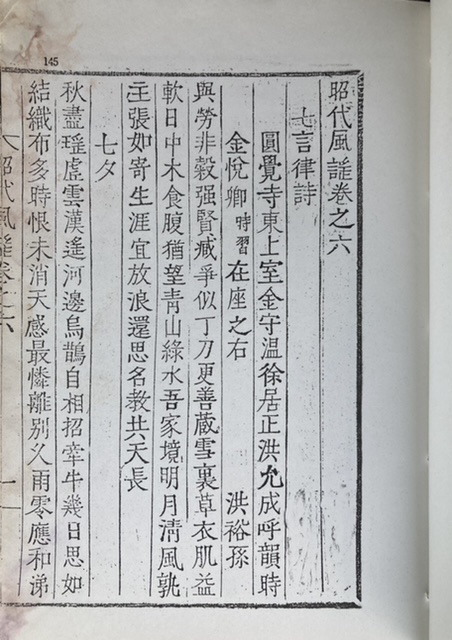 145
昭代風謠卷之六
七言律詩
圓覺寺東上室金守溫徐居正洪允成呼韻時
金悅卿時習在座之右 洪裕孫
與勞非穀强賢臧爭似丁刀更善藏雪裏草衣肌益
軟日中木食腹猶望靑山綠水吾家境明月清風孰
主張如寄生涯宜放浪還思名敎共天長
七夕
秋盡瑶虛雲漢遙河邊烏鵲自相招牽牛幾日思如
結織布多時恨未消天感最憐離別久雨零應和涕
昭代風謠卷之六 一